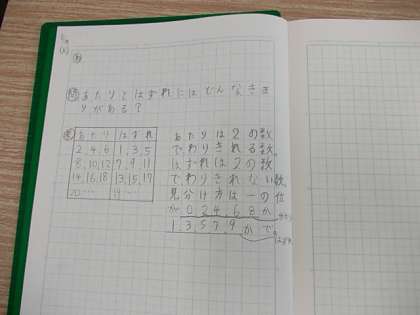 問 あたりとはずれにはどんなきま
りがある？
あたり はずれ
2,4,6 1,3,5
8,10,12 7,9,11
14,16,18 13,15,17
20…… 19……
あたりは2の数
でわりきれる数。
はずれは2の数
でわりきれない数。
見分け方は一の位
が0,2,4,6,8か
1,3,5,7,9かで。
はずれ